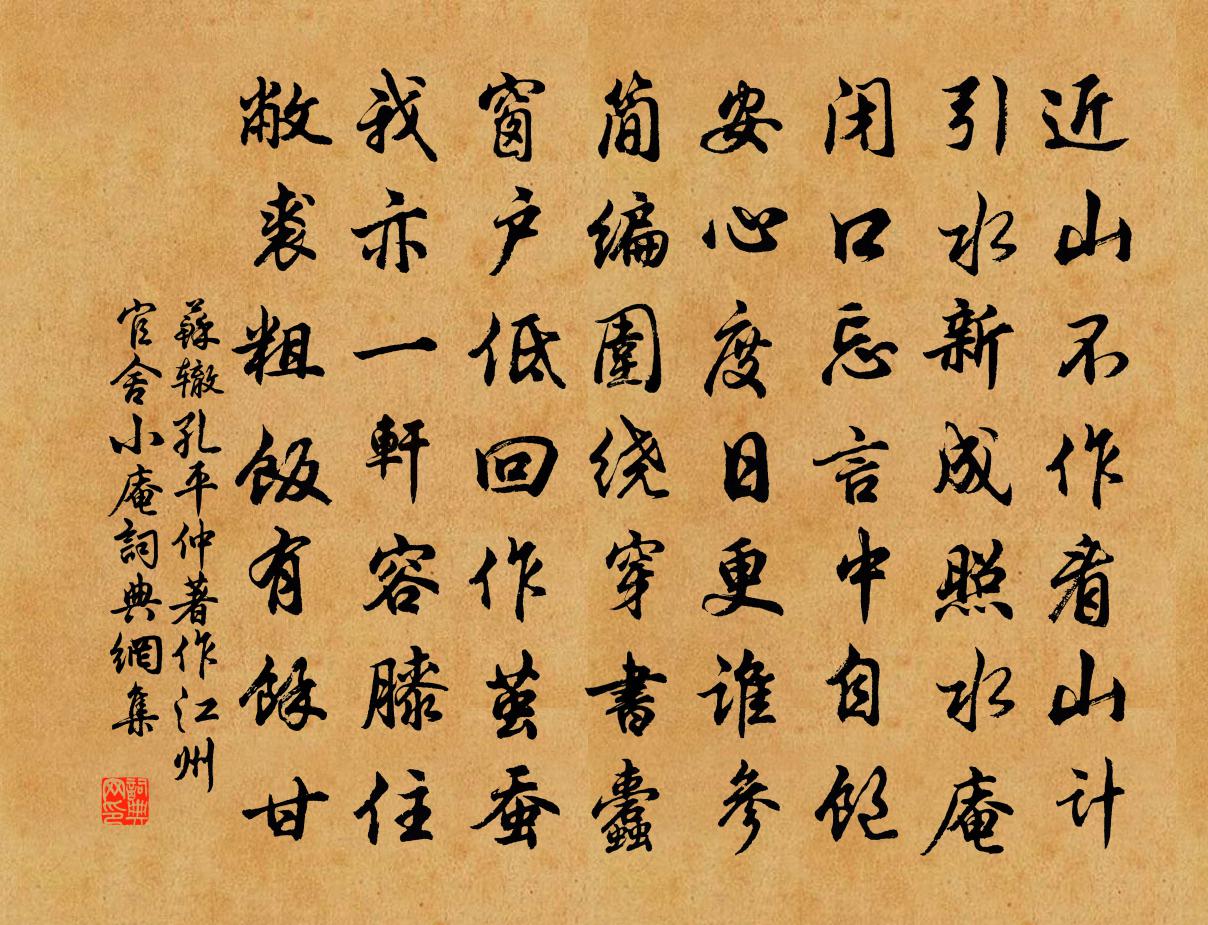 近山不作看山计
引水新成照水庵
闭口忘言中自饱
安心度日更谁参
简编圍绕穿書蠹
窗户低回作茧蚕
我亦一軒容膝住
敝裘粗飯有餘甘
蘇辙孔平仲著作江州
官舍小庵詞典網集
詞典網印